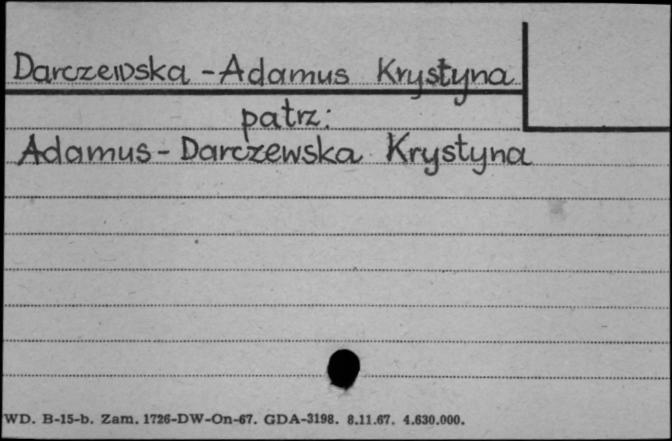 Darczewska - Adamus Krystyna
patrz:
Adamus - Darczewska Krystyna
WD. B-15-b. Zam. 1726-DW-On-67. GDA-3198. 8.11.67. 4.630.000.